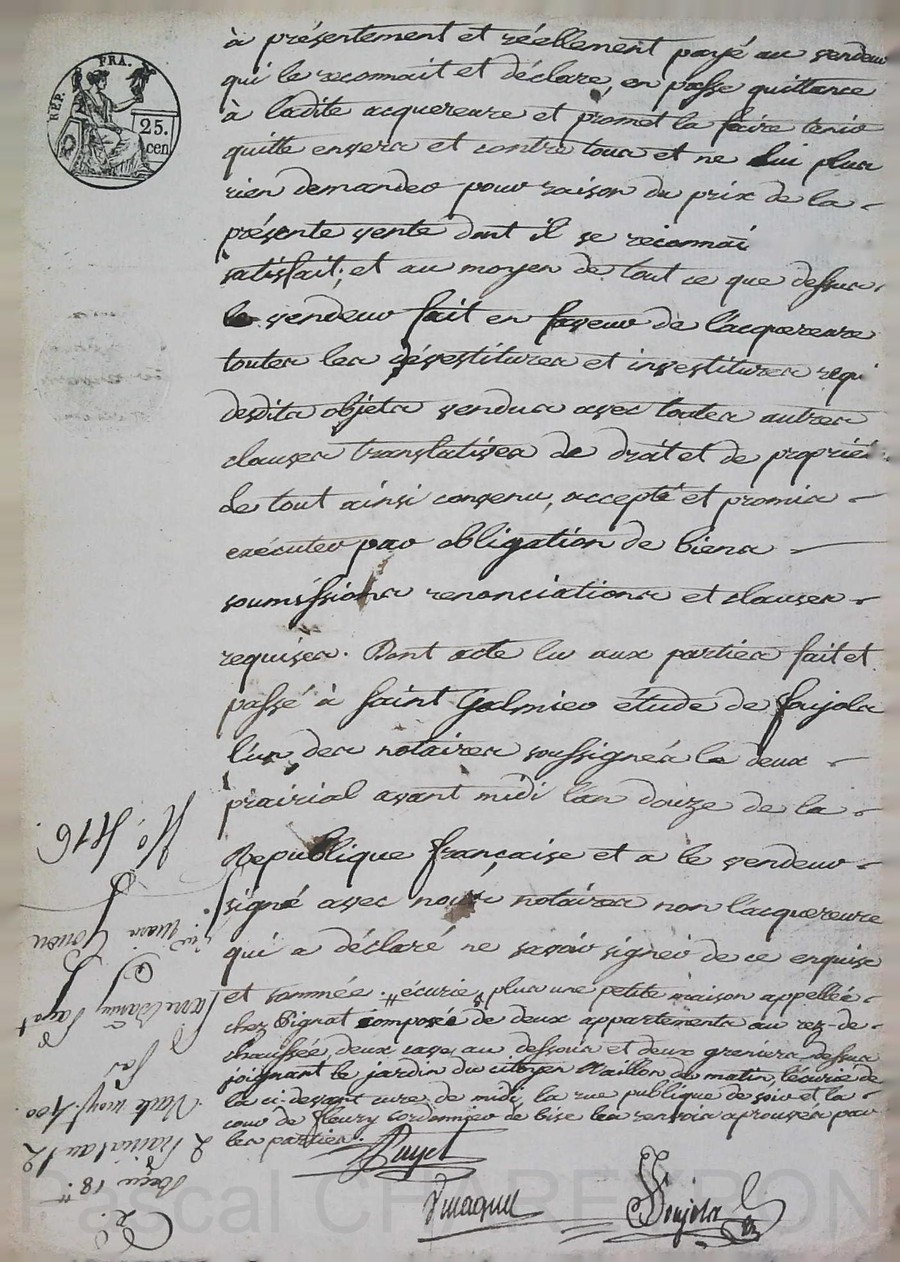 REP. FRA.
25.
cen
à présentement et réellement payé au vendeur
qui le reconnait et déclare, en passe quittance
à ladite acquereure et promet la faire tenir
quitte envers et contre tous et ne lui plus
rien demander pour raison du prix de la
présente vente dont il se reconnai
satisfait; et au moyen de tout ce que dessus
le vendeur fait en faveur de l'acquereure
toutes les dévestitures et investitures requi
desdits objets vendus avec toutes autres
clauses translatives de droit et de proprié
de tout ainsi convenu, accepté et promis
exécuter par obligation de biens
soumissions renonciations et clauses
requises. Dont acte lu aux parties fait et
passé à Saint Galmier étude de Soujols
l'un des notaires soussignés le deux
prairial avant midi l'an douze de la
Republique française et a le vendeur
signé avec nous notaires non l'acquereure
qui a déclaré ne savoir signer de ce enquise
et sommée. # écurie # plus une petite maison appellée
chez Pignat composée de deux appartements au rez-de-
chaussée, deux caves au dessous et deux greniers dessus
joignant le jardin du citoyen Maillon de matin, l'écurie de
la ci-devant cure de midi, la rue publique de soir et la
cour de fleury cordonnier de bise les renvois aprouvés par
les parties.
Puyet
Soujols
N.° 1116
Vente
2 Prairial an 12
Reçu 18.#
Pascal CHAREYRON